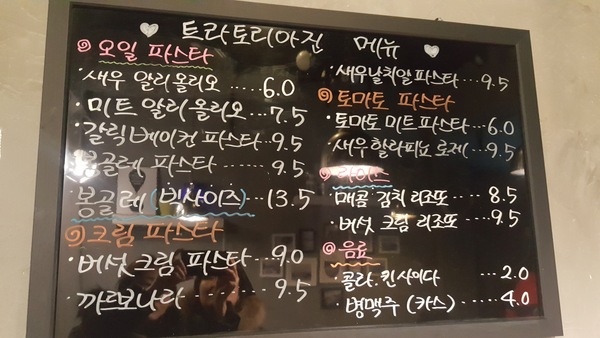 트라토리아진 메뉴
오일 파스타
· 새우 알리올리오 ..... 6.0
· 미트 알리올리오 ... 7.5
· 갈릭베이컨 파스타 9.5
· 봉골레 파스타 ....... 9.5
· 봉골레 (빅사이즈) ... 13.5
크림 파스타
· 버섯 크림 파스타 ... 9.0
· 까르보나라 .......... 9.5
· 새우날치알파스타 ... 9.5
토마토 파스타
· 토마토 미트파스타 ... 6.0
· 새우 할라피뇨 로제 .. 9.5
라이스
· 매콤 김치 리조또 .... 8.5
· 버섯 크림 리조또 .... 9.5
음료
· 콜라. 킨사이다 ... 2.0
· 병맥주 (카스) .... 4.0